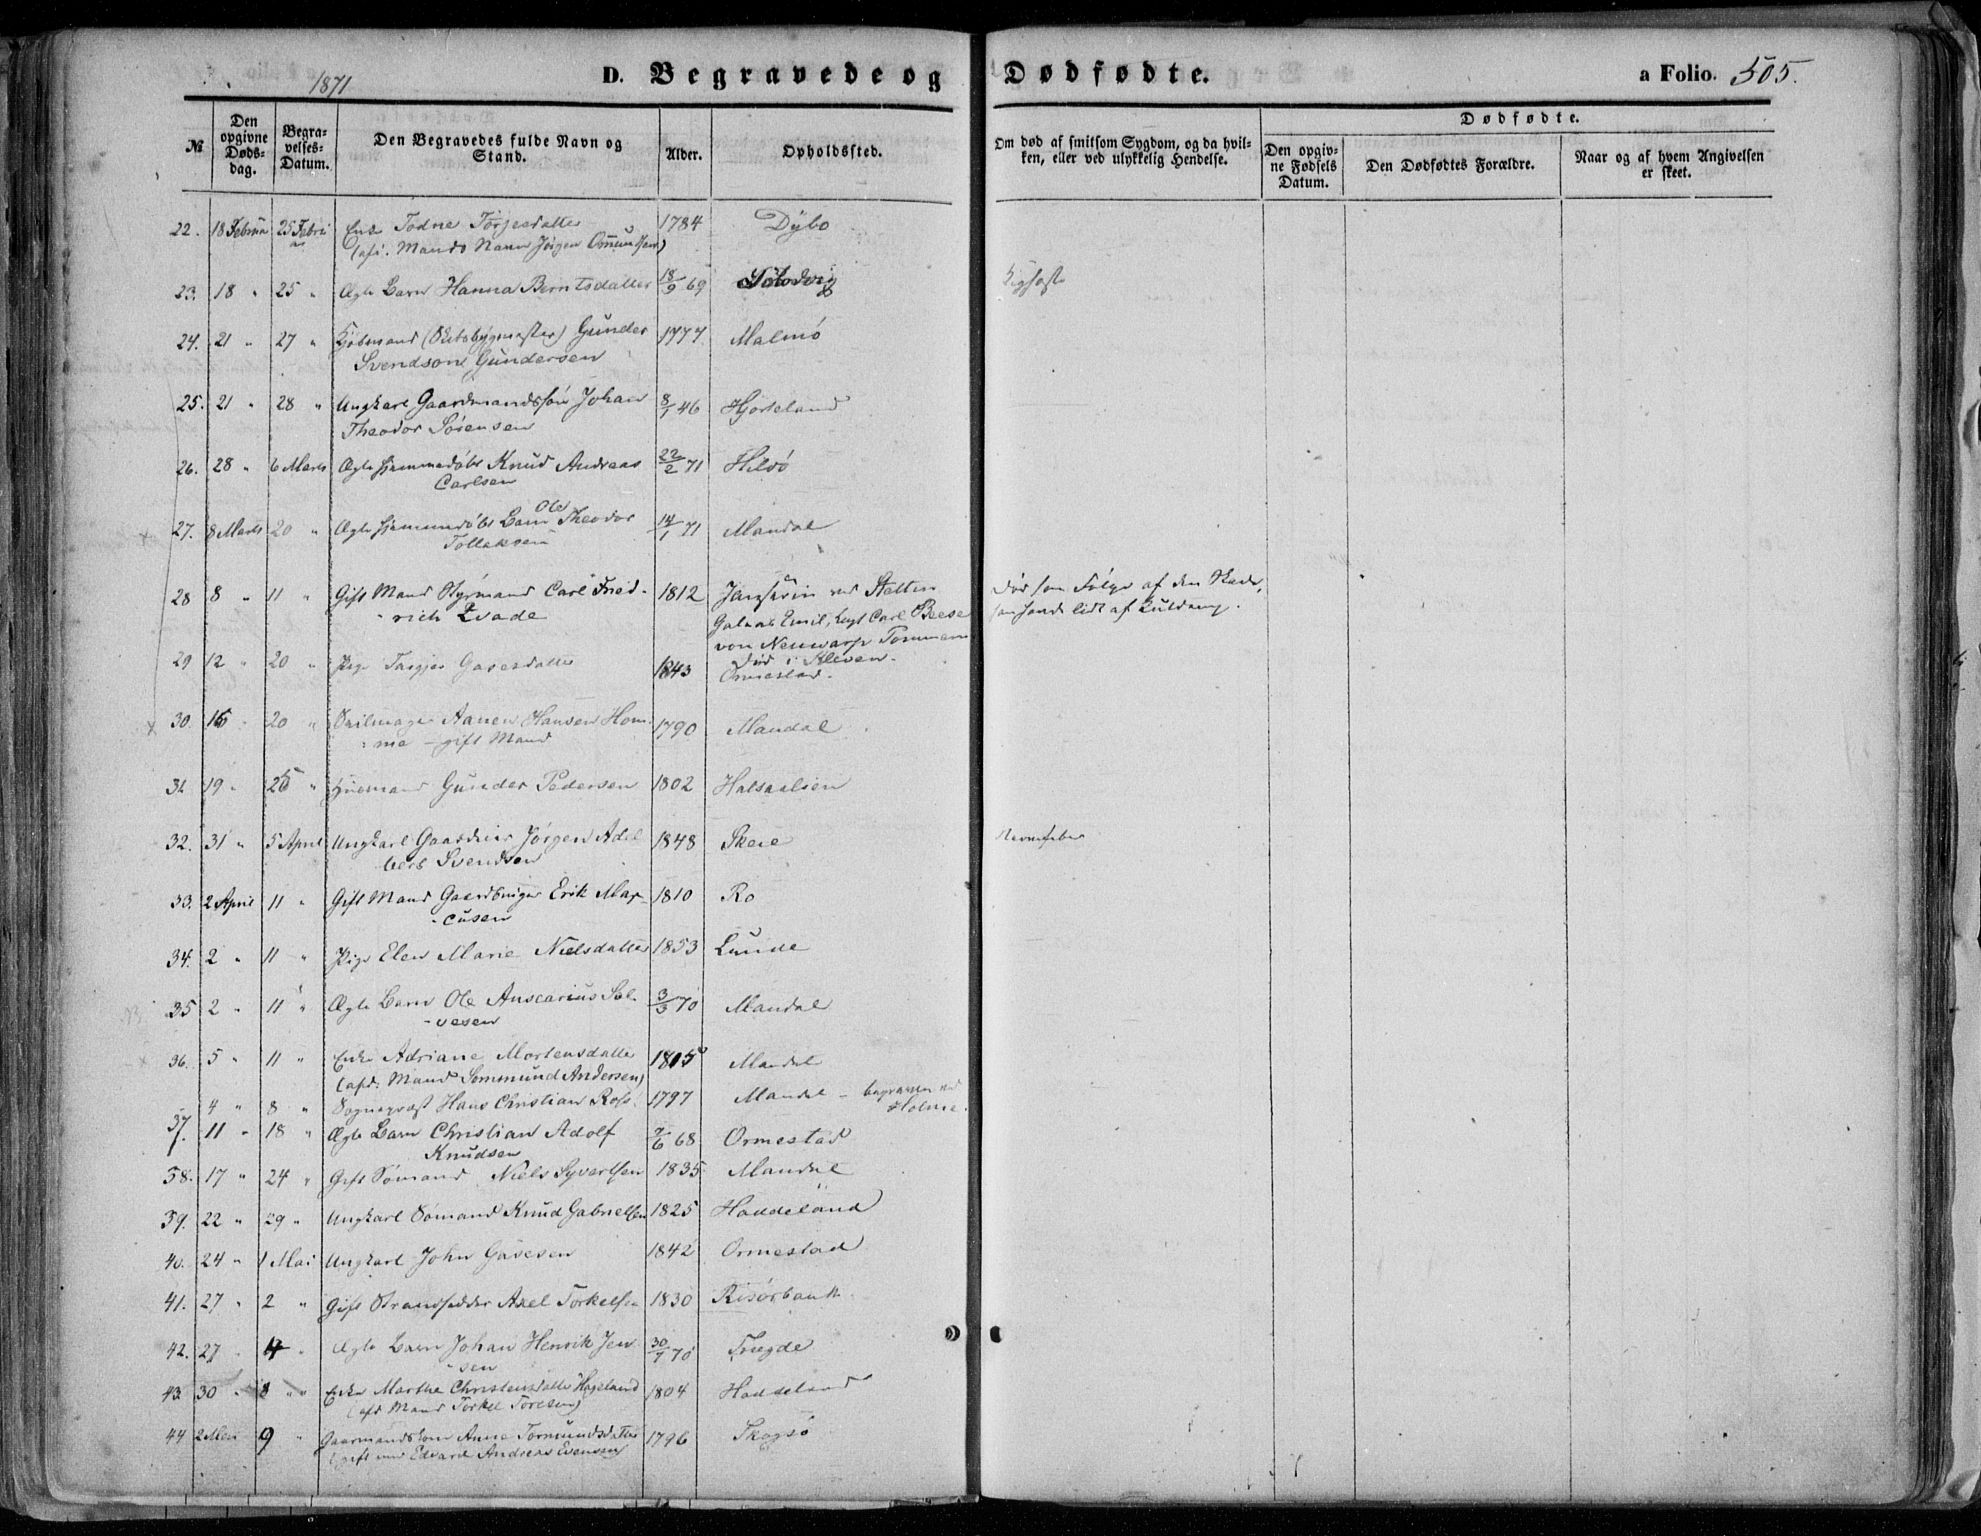 1871
D. Begravede og Dødfødte.
a Folio. 505.
№
Den opgivne Døds-dag.
Begra-velses-Datum.
Den Begravedes fulde Navn og Stand.
Alder.
Opholdssted.
Om død af smitsom Sygdom, og da hvil-
ken, eller ved ulykkelig Hendelse.
Dødfødte.
Den opgiv-ne Fødsels Datum.
Den Dødfødtes Forældre.
Naar og af hvem Angivelsen er skeet.
22. 18 Februa 25 Febru Enke Todne Torjesdatter 1784 Dybo
ar (afd. Mands Navn Jørgen Omundsen)
23. 18 " 25 " Ægte Barn Hanna Berntsdatter 18/9 69
24. 21 " 27 " (Skibsbygmester) Gunder 1777 Malmø
Svendson Gundersen
25. 21 " 28 " Ungkarl Gaardmandssøn Johan 8/1 46 Hjorteland
Theodor Sørensen
26. 28 " 6 Marts Ægte hjemmedøbt Knud Andreas 22/2 71 Hilsø
Carlsen
27. 8 Marts 20 " Ægte hjemmedøbt Barn Ole Theodor 14/1 71 Mandal
Tollaksen
28 8 " 11 " Gift Mand Styrmand Carl Fried- 1812 ved Stettin
død som Følge af den Skade,
-rich Zvade
Galeas Emil, Capt Carl Beese
han havde lidt af
von Neuwarp Pommern
død i Kleven.
29 12 " 20 " Pige Targjer Gasesdatter 1843 Ormestad.
30. 16 " 20 " Seilmager Aanen Hansen Hom- 1790 Mandal
me - gift Mand
31. 19 " 25 " Huusmand Gunder Pedersen 1802 Halsaalien
32. 31 " 5 April Ungkarl Gaardeier Jørgen Adel 1848 Skeie Nervefeber
bert Svendsen
33. 2 April 11 " Gift Mand Gaardbruger Erik Mar- 1810 Ro
-cusen
34. 2 " 11 " Pige Elen Marie Nielsdatter 1853 Lunde
35 2 " 11 " Ægte Barn Ole Anscarius Sal- 3/3 70 Mandal
-vesen
36. 5 " 11 " Enke Adriane Mortensdatter 1805 Mandal
(afd. Mand Sommund Andersen)
4 " 8 " Sogneprest Hans Christian Ross. 1797 Mandal - begraven ved
Holme.
37. 11 " 18 " Ægte Barn Christian Adolf 68 Ormestad
Knudsen
38. 17 " 24 " Gift Sømand Niels Syvertsen 1835 Mandal
39. 22 " 29 " Ungkarl Sømand Knud Gabrielsen 1825 Haudeland
40. 24 " 1 Mai Ungkarl John Gasesen 1842 Ormestad
41. 27 " 2 " Gift Strandsidder Axel Torkelsen 1830 Risørbank
42. 27 " 4 " Ægte Barn Johan Henrik Jen 30/7 70 Tregde
sen
43. 30 " 8 " " Enke Marthe Christensdatter Hageland 1804 Haudeland
(afd Mand Torkel Toresen)
44 2 Mai 9 " Gaarmandskone Anne Tormundsdatter 1796 Skogsø
(gift med Edvard Andreas Evensen)